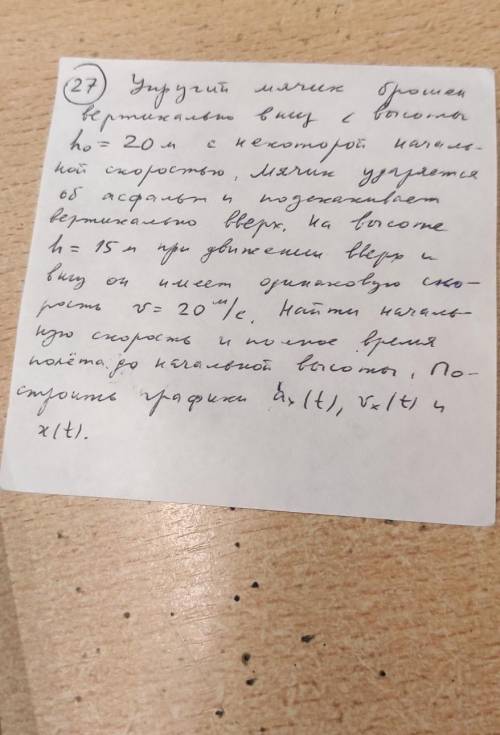 27 Упругий мячик брошен
вертикально вниз с высоты
h₀ = 20 м с некоторой началь-
ной скоростью. Мячик ударяется
об асфальт и подскакивает
вертикально вверх. На высоте
h = 15 м при движении вверх и
вниз он имеет одинаковую ско-
рость v = 20 м/с. Найти началь-
ную скорость и полное время
полёта до начальной высоты. По-
строить графики aₓ(t), vₓ(t) и
x(t).